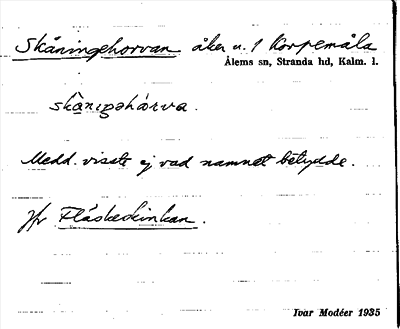 Skåningehorvan åker u. 1 Korpemåla
Ålems sn, Stranda hd, Kalm. l.
skån̥igəhárva.
Medd. visste ej vad namnet betydde.
Jfr Fläskeskinkan.
Ivar Modéer 1935